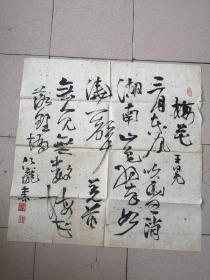 梅花 王冕
三月东风吹雪消
湖南山色翠如
浇一声羌管
無人見無数梅花
落野橋